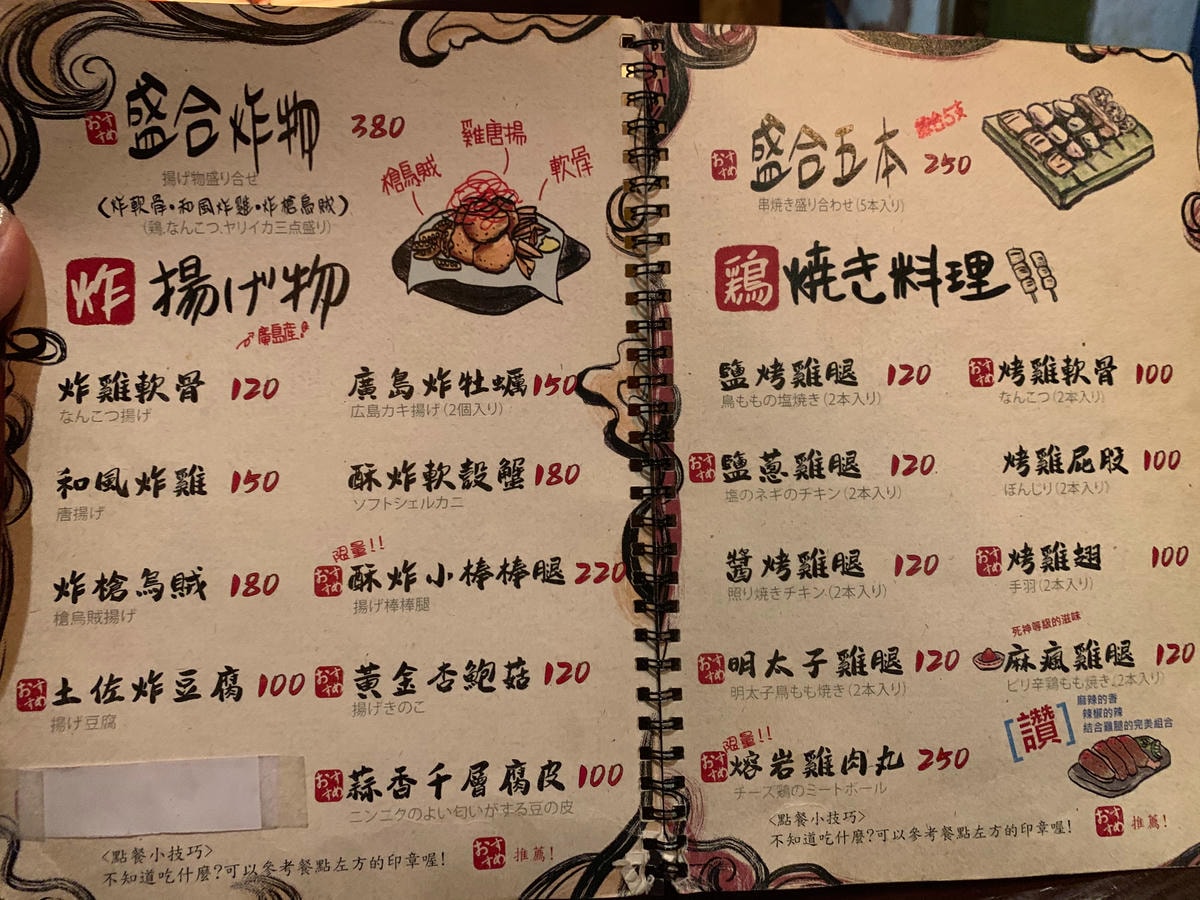 おすすめ 盛合炸物 380
揚げ物盛り合せ
(炸軟骨・和風炸雞・炸槍烏賊)
(鶏,なんこつ,ヤリイカ三点盛り)
槍烏賊
雞唐揚
軟骨
炸 揚げ物
廣島産
炸雞軟骨 120
なんこつ揚げ
廣島炸牡蠣 150
広島カキ揚げ(2個入り)
和風炸雞 150
唐揚げ
酥炸軟殼蟹 180
ソフトシェルカニ
炸槍烏賊 180
槍烏賊揚げ
限量!!
おすすめ 酥炸小棒棒腿 220
揚げ棒棒腿
おすすめ 土佐炸豆腐 100
揚げ豆腐
おすすめ 黃金杏鮑菇 120
揚げきのこ
おすすめ 蒜香千層腐皮 100
ニンニクのよい匂いがする豆の皮
<點餐小技巧>
不知道吃什麼?可以參考餐點左方的印章喔!
おすすめ 推薦!
おすすめ 盛合五本 250
綜合5支
串焼き盛り合わせ(5本入り)
鶏 焼き料理
鹽烤雞腿 120
鳥ももの塩焼き(2本入り)
おすすめ 烤雞軟骨 100
なんこつ(2本入り)
おすすめ 鹽蔥雞腿 120
塩のネギのチキン(2本入り)
烤雞屁股 100
ぼんじり(2本入り)
醬烤雞腿 120
照り焼きチキン(2本入り)
おすすめ 烤雞翅 100
手羽(2本入り)
おすすめ 明太子雞腿 120
明太子鳥もも焼き(2本入り)
死神等級的滋味
麻瘋雞腿 120
ピリ辛鶏もも焼き(2本入り)
[讚]
麻辣的香
辣椒的辣
結合雞腿的完美組合
限量!!
おすすめ 熔岩雞肉丸 250
チーズ鶏のミートボール
<點餐小技巧>
不知道吃什麼?可以參考餐點左方的印章喔!
おすすめ 推薦!